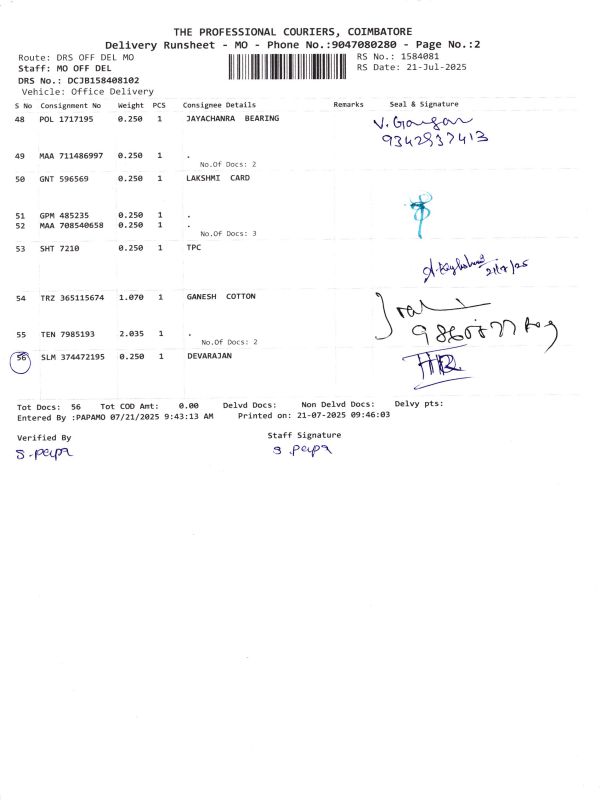 THE PROFESSIONAL COURIERS, COIMBATORE
Delivery Runsheet - MO - Phone No.:9047080280 - Page No.:2
Route: DRS OFF DEL MO RS No.: 1584081
Staff: MO OFF DEL RS Date: 21-Jul-2025
DRS No.: DCJB158408102
Vehicle: Office Delivery
S No Consignment No Weight PCS Consignee Details Remarks Seal & Signature
48 POL 1717195 0.250 1 JAYACHANRA BEARING
9342937413
49 MAA 711486997 0.250 1 .
No.Of Docs: 2
50 GNT 596569 0.250 1 LAKSHMI CARD
51 GPM 485235 0.250 1 .
52 MAA 708540658 0.250 1 .
No.Of Docs: 3
53 SHT 7210 0.250 1 TPC
21/7/25
54 TRZ 365115674 1.070 1 GANESH COTTON
55 TEN 7985193 2.035 1 .
No.Of Docs: 2
56 SLM 374472195 0.250 1 DEVARAJAN
Tot Docs: 56 Tot COD Amt: 0.00 Delvd Docs: Non Delvd Docs: Delvy pts:
Entered By :PAPAMO 07/21/2025 9:43:13 AM Printed on: 21-07-2025 09:46:03
Verified By Staff Signature
S.Papa S.Papa